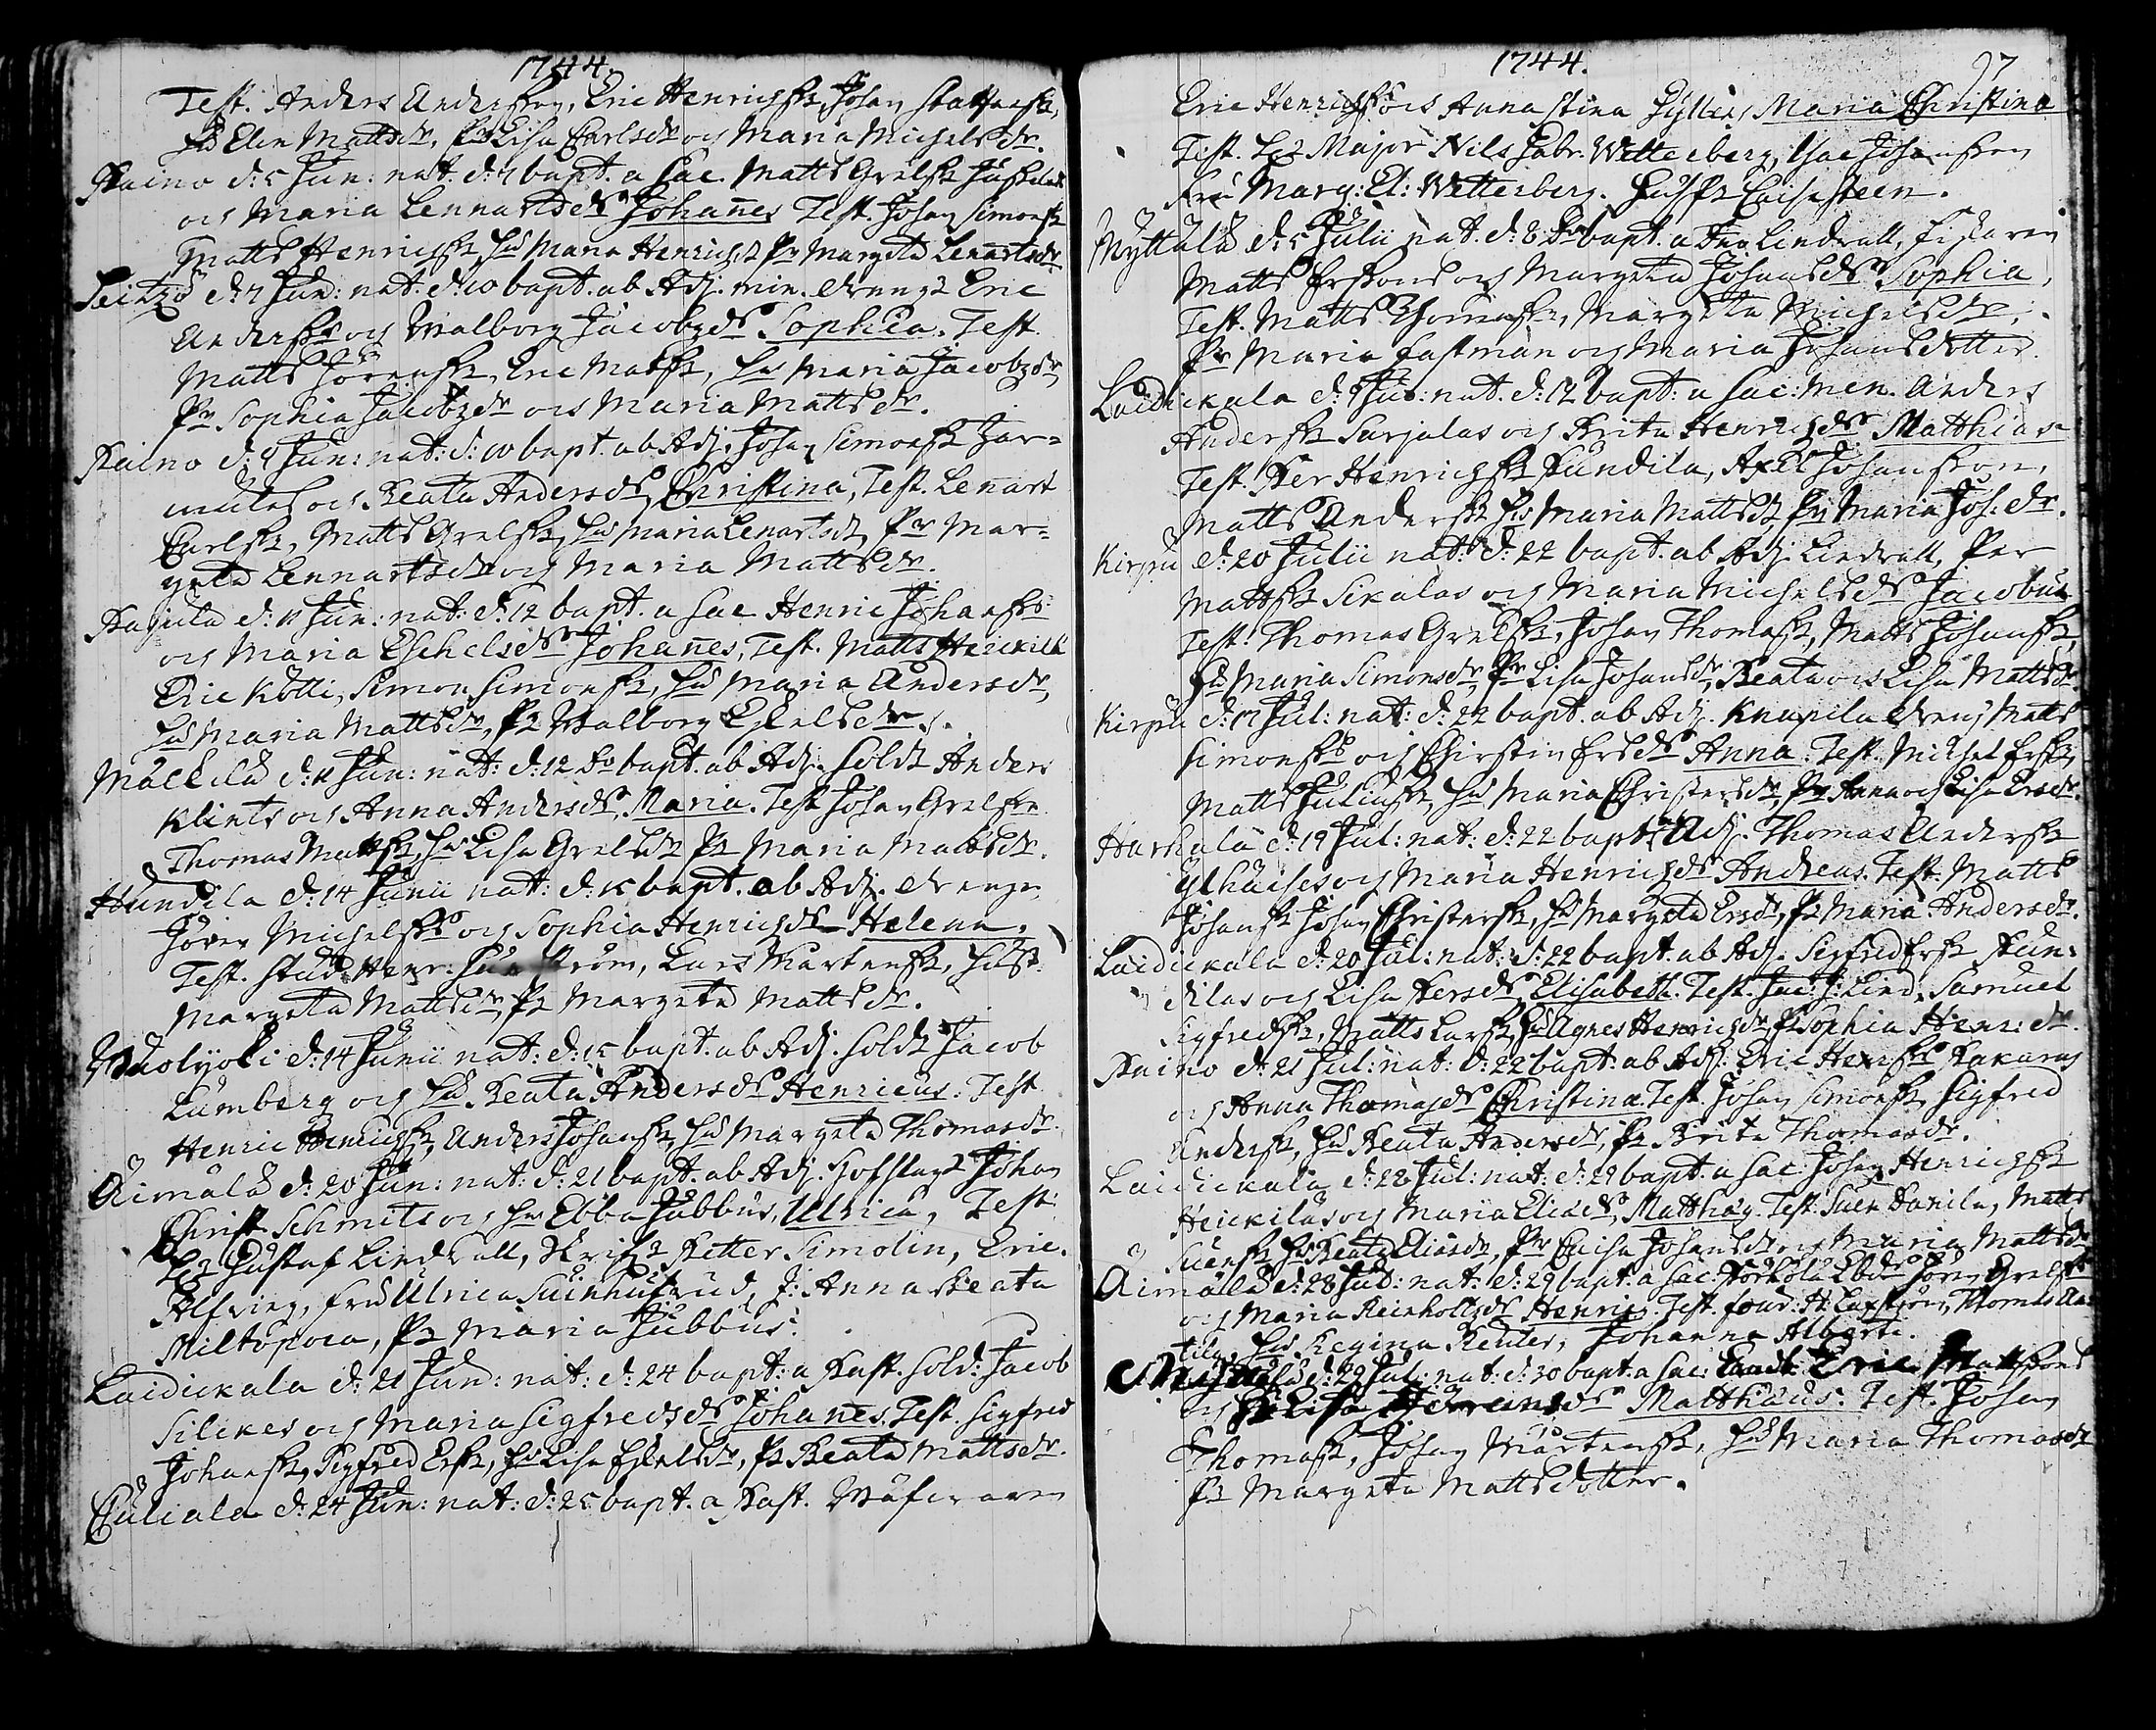 1744.
Test. Anders Andersson, Eric Henrichss, Johan Staffanss,
Hu Elin Mattsdr, Pr Lisa Carlsdr och Maria Michelsdr.
Kaino d: 5 Jun: nat. d: 7 bapt. a Sac. Matts Grelss
och Maria Lennartsdr Johannes Test. Johan Simonss
Matts Henrichss, Hu Maria Henrichsd Pr Margeta Lenartsdr
d: 7 Jun: nat. d: 10 bapt. ab Adj. min. drengz Eric
Anderss och Walborg Jacobzdr Sophia. Test.
Matts Jörenss, Eric Matss, Hu Maria Jacobzdr
Pr Sophia Jacobzdr och Maria Mattsdr.
Kaino d: 9 Jun: nat: d: 10 bapt. ab Adj. Johan Simonss Har=
mulas och Beata Andersdr, Christina, Test. Lenart
Carlss, Matts Grelss, Hu Maria Lenartsd, Pr Mar=
geta Lennartsdr och Maria Mattsdr.
d: 11 Jun: nat: d: 12 bapt. a Sac Henric Johanss
och Maria Eschelsdr Johannes, Test. Matts Heickilä
Eric Kölli, Simon Simonss, Hu Maria Andersdr,
Hu Maria Mattsdr, Pr Walborg Eskelsdr.
Mälkilä d: 11 Jun: nat: d: 12 Do bapt. ab Adj. Soldt Anders
Klint och Anna Andersdr, Maria. Test Johan Grelss
Thomas Mattss, Hu Lisa Grelsdr Pr Maria Mattsdr.
Hundila d: 14 Junii nat: d: 15 bapt. ab Adj. drengn
Jören Michelss och Sophia Henrichsdr Helena.
Test. Stud. Henr: , Lars Mårtenss, Hust.
Margeta Mattsdr, Pr Margeta Mattsdr.
Wuolijoki d: 14 Junii nat: d: 15 bapt. ab Adj. Soldt Jacob
Lumberg och Hu Beata Andersdr Henricus. Test
Henric Henrichss, Anders Johanss, Hu Margeta Thomasdr.
Äimälä d: 20 Jun: nat: d: 21 bapt. ab Adj. Hofslagr Johan
Christ. Schmits och Hu Ebba Jubbus, Ulrica, Test:
Gustaf Lindwall, Simolin, Eric.
Alfving, fru Ulrica Suinhufvud, J: Anna Beata
Miltopoea, Pr Maria Jubbus.
Laidickala d: 21 Jun: nat: d: 24 bapt: a Past. Sold: Jacob
Silckes och Maria Sigfredsdr Johanes. Test. Sigfred
Johanss, Sigfred Erss, Hu Lisa Eskelsdr, Pr Beata Mattsdr.
d: 24 Jun: nat: d: 25 bapt. a Past.
1744. 97
Eric Henrichss och Anna Stina Gyllers, Maria Christina
Test. Major Nils Gabr. Wetterberg, Isac Johansson
fru Marg: El: Wetterberg. Caisa Steen.
Myttälä d: 5 Julii nat. d: 8 Do bapt. a Lindwall, fiskaren
Matts Erssons och Margeta Johansdr Sophia,
Test. Matts Thomass, Margeta Michelsdr,
Pr Maria Eastman och Maria Johansdotter.
Laidickala d: 8 Jul: nat. d: 12 bapt: a Sac: men. Anders
Anderss Sarjalas och Brita Henrichsdr Matthias.
Test. Per Henrichss Hundila, Axel Johansson,
Matts Anderss Hu Maria Mattsdr Pr Maria Joh. dr.
Kirpu d: 20 Julii nat: d: 22 bapt. ab Adj. Lindwall, Per
Mattss Sikalas och Maria Michelsdr Jacobus
Test. Thomas Grelss, Johan Thomass, Matts Johanss,
Hu Maria Simonsdr, Pr Lisa Johansdr, Beata och Lisa Mattsdr.
Kirpu d: 17 Jul: nat: d: 22 bapt. ab Adj. Knapila dreng Matts
Simonss och Chirstin Ersdr Anna. Test. Michel Erss,
Matts Juliuss, Hu Maria Christersdr, Pr Anna och Lisa Ersdr.
Harhala d: 19 Jul: nat: d: 22 bapt: Adj. Thomas Anderss
och Maria Henrichsdr Andreas. Test. Matts
Johanss Johan Christerss, Hu Margeta Ersdr, Pr Maria Andersdr.
Laidickala d: 20 Jul: nat: d: 22 bapt. ab Adj. Sigfred Erss Hun:
dilas och Lisa Persdr, Elisabeth. Test. Sac: J: Lind, Samuel
Sigfredss, Matts Larss, Hu Agnes Henrichsdr, Pr Sophia Henr: dr.
Kaino d: 21 Jul: nat: d: 22 bapt. ab Adj. Eric Henrss
och Anna Thomasdr Christina. Test. Johan Simonss, Sigfred
Anderss, Hu Beata Andersdr, Pr Brita Thomasdr.
Laidickala d: 28 Jul: nat: d: 29 bapt. a Sac: Johan Henrichss
Heickilas och Maria Eliaedr, Matthæus. Test: Suen Danila, Matts
Suenss Hu Beata Eliasdr, Pr Caisa Johansdr och Maria Mattsdr
Äimälä d: 28 Jul: nat: d: 29 bapt. a Sac. Jören Grelss
och Maria Reinholtsdr Henric. Test. , Thomas
Hu. Regina Reuter, Johanna Alberti.
d: 29 Jul: nat: d: 30 bapt. a Sac: Eric Mattssons
och Lisa Matthæus. Test. Johan
Thomass, Johan Mårtenss, Hu Maria Thomasdr
Pr Margeta Mattsdotter.